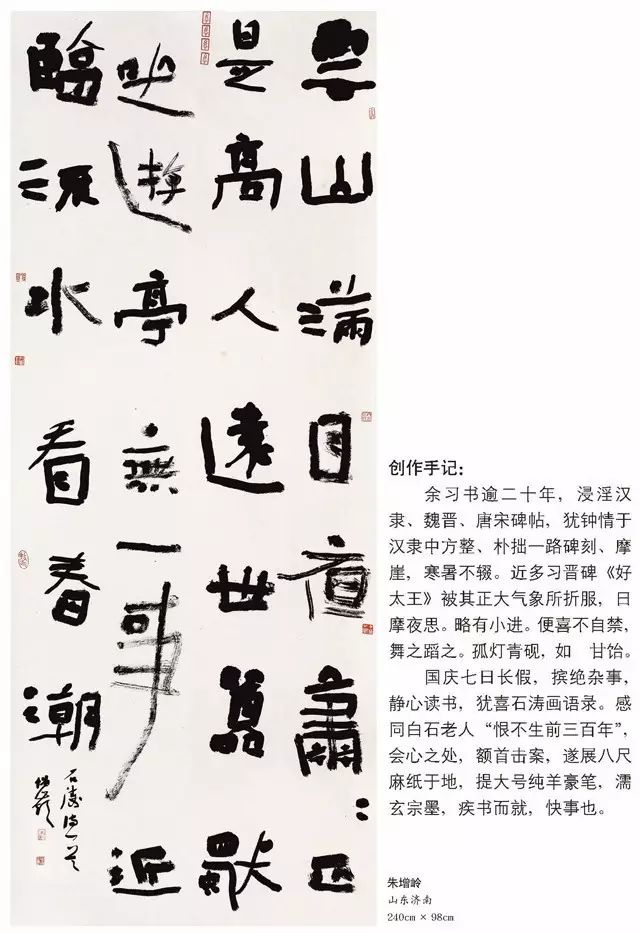 山滿目蕭〻正
是高人遠世囂歇
遊亭無一事近
臨流水看春潮
石濤詩一首
增岭
创作手记：
余习书逾二十年，浸淫汉
隶、魏晋、唐宋碑帖，犹钟情于
汉隶中方整、朴拙一路碑刻、摩
崖，寒暑不辍。近多习晋碑《好
太王》被其正大气象所折服，日
摩夜思。略有小进。便喜不自禁，
舞之蹈之。孤灯青砚，如　甘饴。
国庆七日长假，摈绝杂事，
静心读书，犹喜石涛画语录。感
同白石老人“恨不生前三百年”，
会心之处，额首击案，遂展八尺
麻纸于地，提大号纯羊豪笔，濡
玄宗墨，疾书而就，快事也。
朱增岭
山东济南
240cm × 98cm